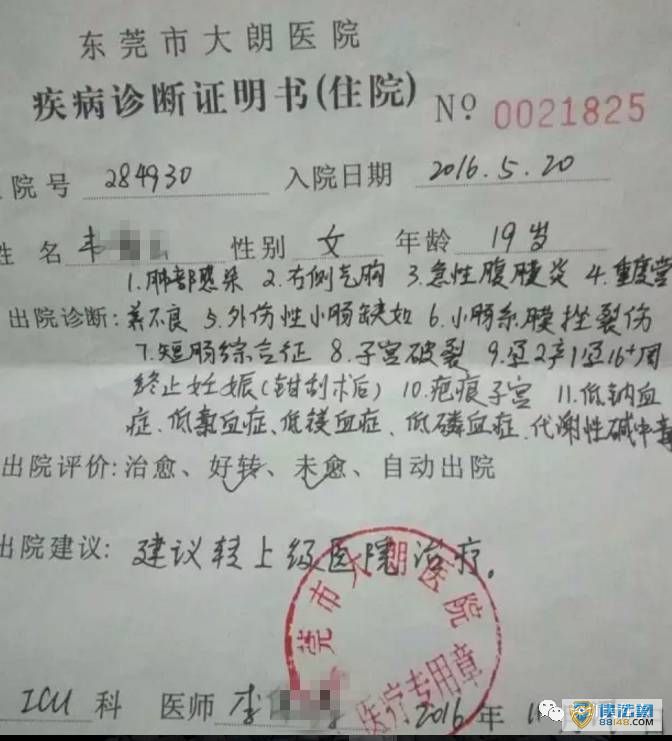 东莞市大朗医院
疾病诊断证明书(住院) Nº 0021825
院号 284930 入院日期 2016.5.20
姓名 韦 性别 女 年龄 19岁
1.肺部感染 2.右侧气胸 3.急性腹膜炎 4.重度营
出院诊断: 养不良 5.外伤性小肠缺如 6.小肠系膜挫裂伤
7.短肠综合征 8.子宫破裂 9.孕2产1孕16+周
终止妊娠(钳刮术后) 10.疤痕子宫 11.低钠血
症、低氯血症、低镁血症、低磷血症、代谢性碱中毒
出院评价: 治愈、好转、未愈、自动出院
出院建议: 建议转上级医院治疗。
东莞市大朗医院
医疗专用章
ICU 科 医师 李 2016年
88148.com